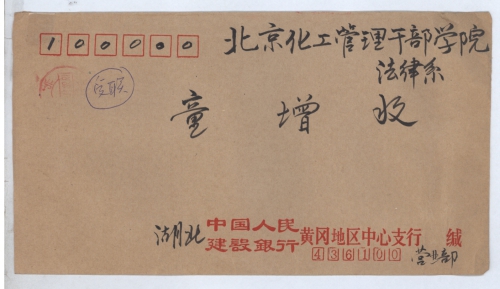 100000
北京化工管理干部学院
法律系
童增 收
湖北 中国人民建设银行 黄冈地区中心支行 缄
436100 营业部